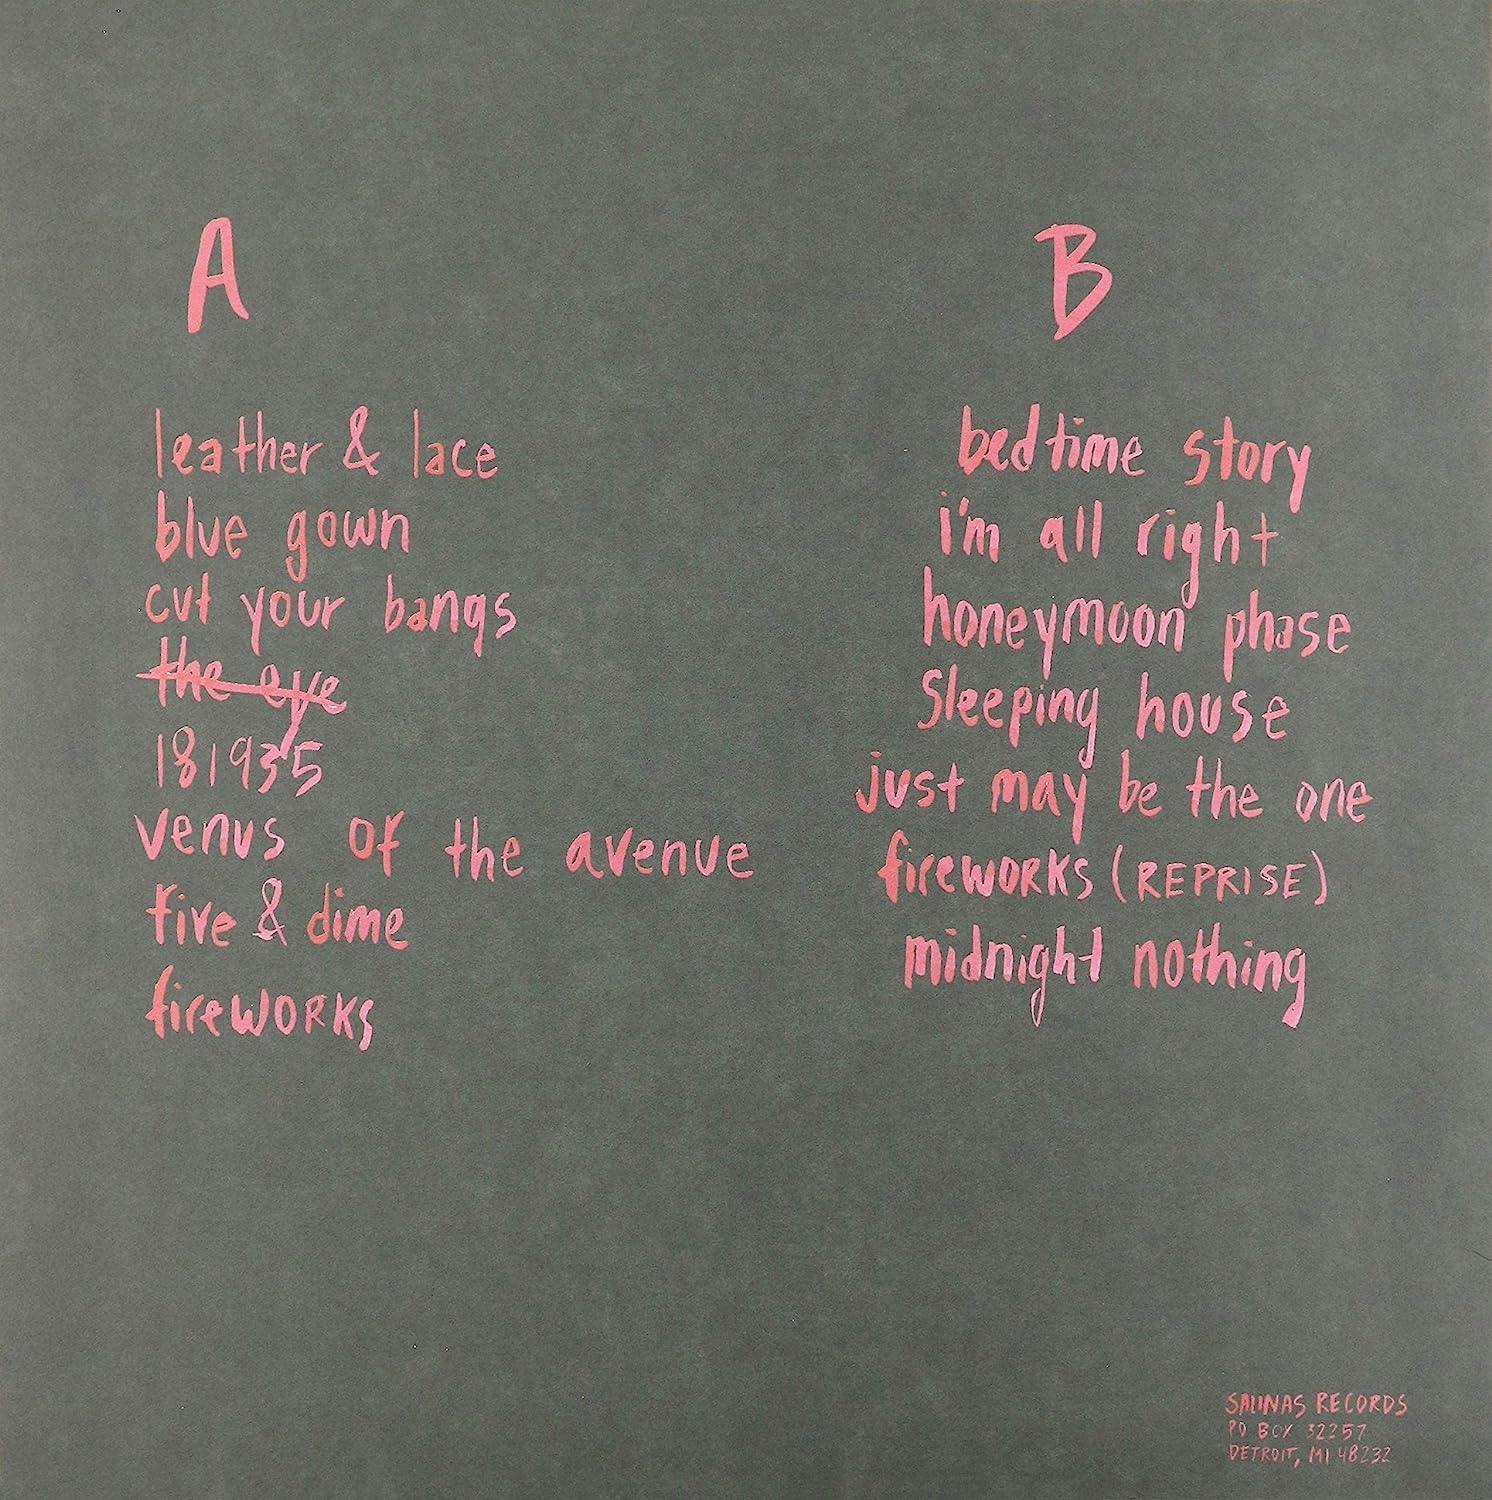 A
leather & lace
blue gown
cut your bangs
the eye
181935
venus of the avenue
five & dime
fireworks
B
bedtime story
i'm all right
honeymoon phase
Sleeping house
just may be the one
fireworks (REPRISE)
midnight nothing
SALINAS RECORDS
PO BOX 32257
DETROIT, MI 48232